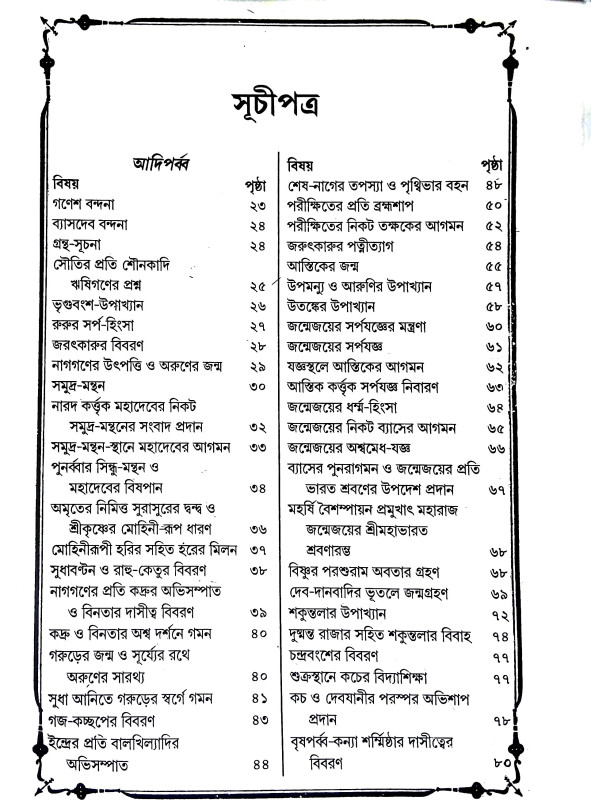 সূচীপত্র
আদিপর্ব্ব
বিষয় পৃষ্ঠা
গণেশ বন্দনা ২৩
ব্যাসদেব বন্দনা ২৪
গ্রন্থ-সূচনা ২৪
সৌতির প্রতি শৌনকাদি
ঋষিগণের প্রশ্ন ২৫
ভৃগুবংশ-উপাখ্যান ২৬
রুরুর সর্প-হিংসা ২৭
জরৎকারুর বিবরণ ২৮
নাগগণের উৎপত্তি ও অরুণের জন্ম ২৯
সমুদ্র-মন্থন ৩০
নারদ কর্ত্তৃক মহাদেবের নিকট
সমুদ্র-মন্থনের সংবাদ প্রদান ৩২
সমুদ্র-মন্থন-স্থানে মহাদেবের আগমন ৩৩
পুনর্ব্বার সিন্ধু-মন্থন ও
মহাদেবের বিষপান ৩৪
অমৃতের নিমিত্ত সুরাসুরের দ্বন্দ্ব ও
শ্রীকৃষ্ণের মোহিনী-রূপ ধারণ ৩৬
মোহিনীরূপী হরির সহিত হরের মিলন ৩৭
সুধাবণ্টন ও রাহু-কেতুর বিবরণ ৩৮
নাগগণের প্রতি কদ্রুর অভিসম্পাত
ও বিনতার দাসীত্ব বিবরণ ৩৯
কদ্রু ও বিনতার অশ্ব দর্শনে গমন ৪০
গরুড়ের জন্ম ও সূর্য্যের রথে
অরুণের সারথ্য ৪০
সুধা আনিতে গরুড়ের স্বর্গে গমন ৪১
গজ-কচ্ছপের বিবরণ ৪৩
ইন্দ্রের প্রতি বালখিল্যাদির
অভিসম্পাত ৪৪
বিষয় পৃষ্ঠা
শেষ-নাগের তপস্যা ও পৃথিভার বহন ৪৮
পরীক্ষিতের প্রতি ব্রহ্মশাপ ৫০
পরীক্ষিতের নিকট তক্ষকের আগমন ৫২
জরুৎকারুর পত্নীত্যাগ ৫৪
আস্তিকের জন্ম ৫৫
উপমন্যু ও আরুণির উপাখ্যান ৫৭
উতঙ্কের উপাখ্যান ৫৮
জন্মেজয়ের সর্পযজ্ঞের মন্ত্রণা ৬০
জন্মেজয়ের সর্পযজ্ঞ ৬১
যজ্ঞস্থলে আস্তিকের আগমন ৬২
আস্তিক কর্ত্তৃক সর্পযজ্ঞ নিবারণ ৬৩
জন্মেজয়ের ধর্ম্ম-হিংসা ৬৪
জন্মেজয়ের নিকট ব্যাসের আগমন ৬৫
জন্মেজয়ের অশ্বমেধ-যজ্ঞ ৬৬
ব্যাসের পুনরাগমন ও জন্মেজয়ের প্রতি
ভারত শ্রবণের উপদেশ প্রদান ৬৭
মহর্ষি বৈশম্পায়ন প্রমুখাৎ মহারাজ
জন্মেজয়ের শ্রীমহাভারত
শ্রবণারম্ভ ৬৮
বিষ্ণুর পরশুরাম অবতার গ্রহণ ৬৮
দেব-দানবাদির ভূতলে জন্মগ্রহণ ৬৯
শকুন্তলার উপাখ্যান ৭২
দুষ্মন্ত রাজার সহিত শকুন্তলার বিবাহ ৭৪
চন্দ্রবংশের বিবরণ ৭৭
শুক্রস্থানে কচের বিদ্যাশিক্ষা ৭৭
কচ ও দেবযানীর পরস্পর অভিশাপ
প্রদান ৭৮
বৃষপর্ব্ব-কন্যা শর্ম্মিষ্ঠার দাসীত্বের
বিবরণ ৮০